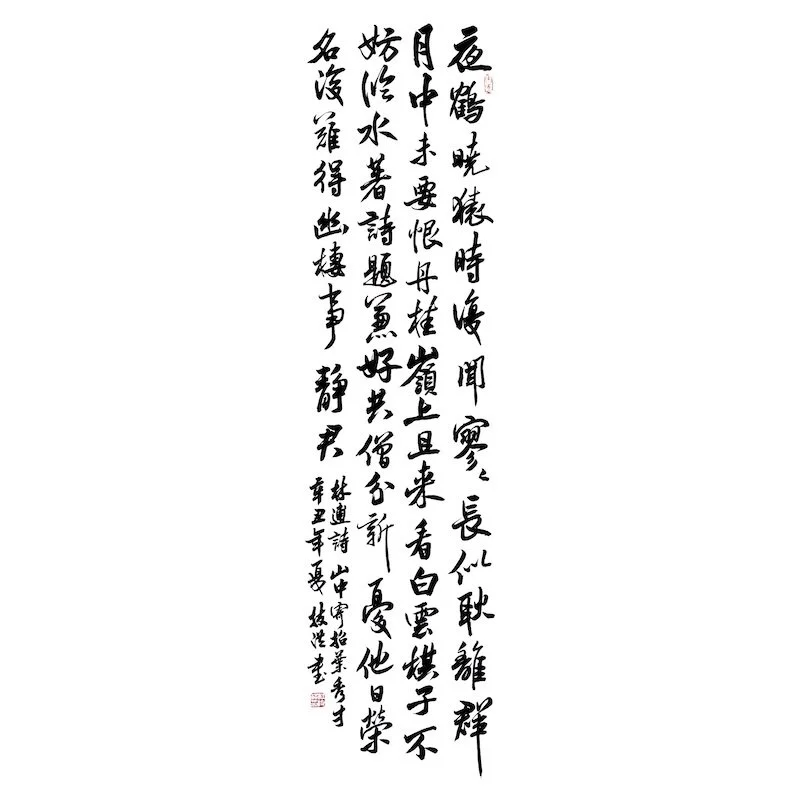 夜鶴曉猿時復聞寥々長似耿離群
月中未要恨丹桂嶺上且来看白雲棋子不
妨臨水著詩題兼好共僧分新憂他日榮
名後難得幽棲事靜君
林逋詩 山中寄招葉秀才
辛丑年夏 書